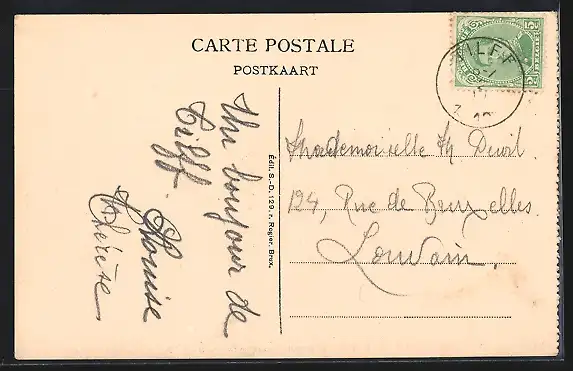 CARTE POSTALE
POSTKAART
TILFF
Un bonjour de
Tilff.
Louise
Thérèse
Edit. S.-D. 129. r. Rogier. Brux.
Mademoiselle Th
124, Rue de Bruxelles.
Louvain.